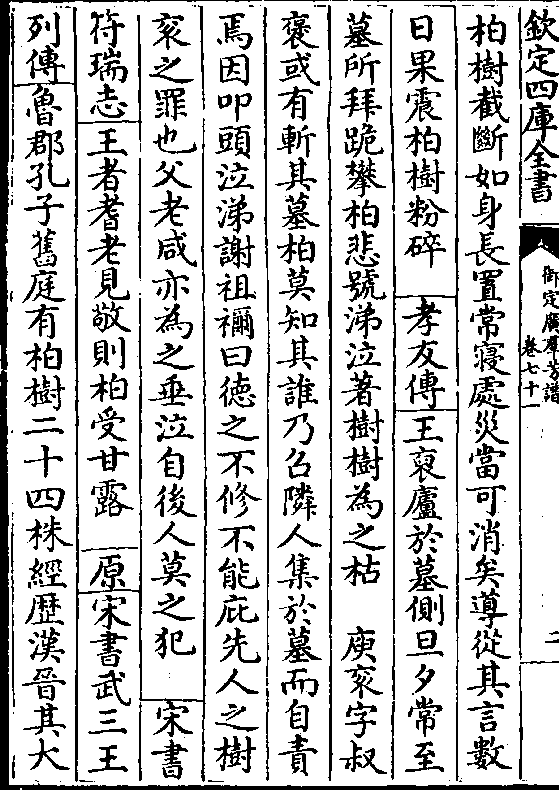 欽定四庫全書
御定廣羣芳譜
卷七十一
二
柏樹截斷如身長置常寢處災當可消矣導從其言數
日果震柏樹粉碎 孝友傳 王裒廬於墓側旦夕常至
墓所拜跪攀柏悲號涕泣著樹樹為之枯 庾衮字叔
褒或有斬其墓柏莫知其誰乃召隣人集於墓而自責
焉因叩頭泣涕謝祖禰曰德之不修不能庇先人之樹
衮之罪也父老咸亦為之垂泣自後人莫之犯 宋書
符瑞志 王者耆老見敬則柏受甘露 原 宋書武三王
列傳 魯郡孔子舊庭有柏樹二十四株經歴漢晉其大